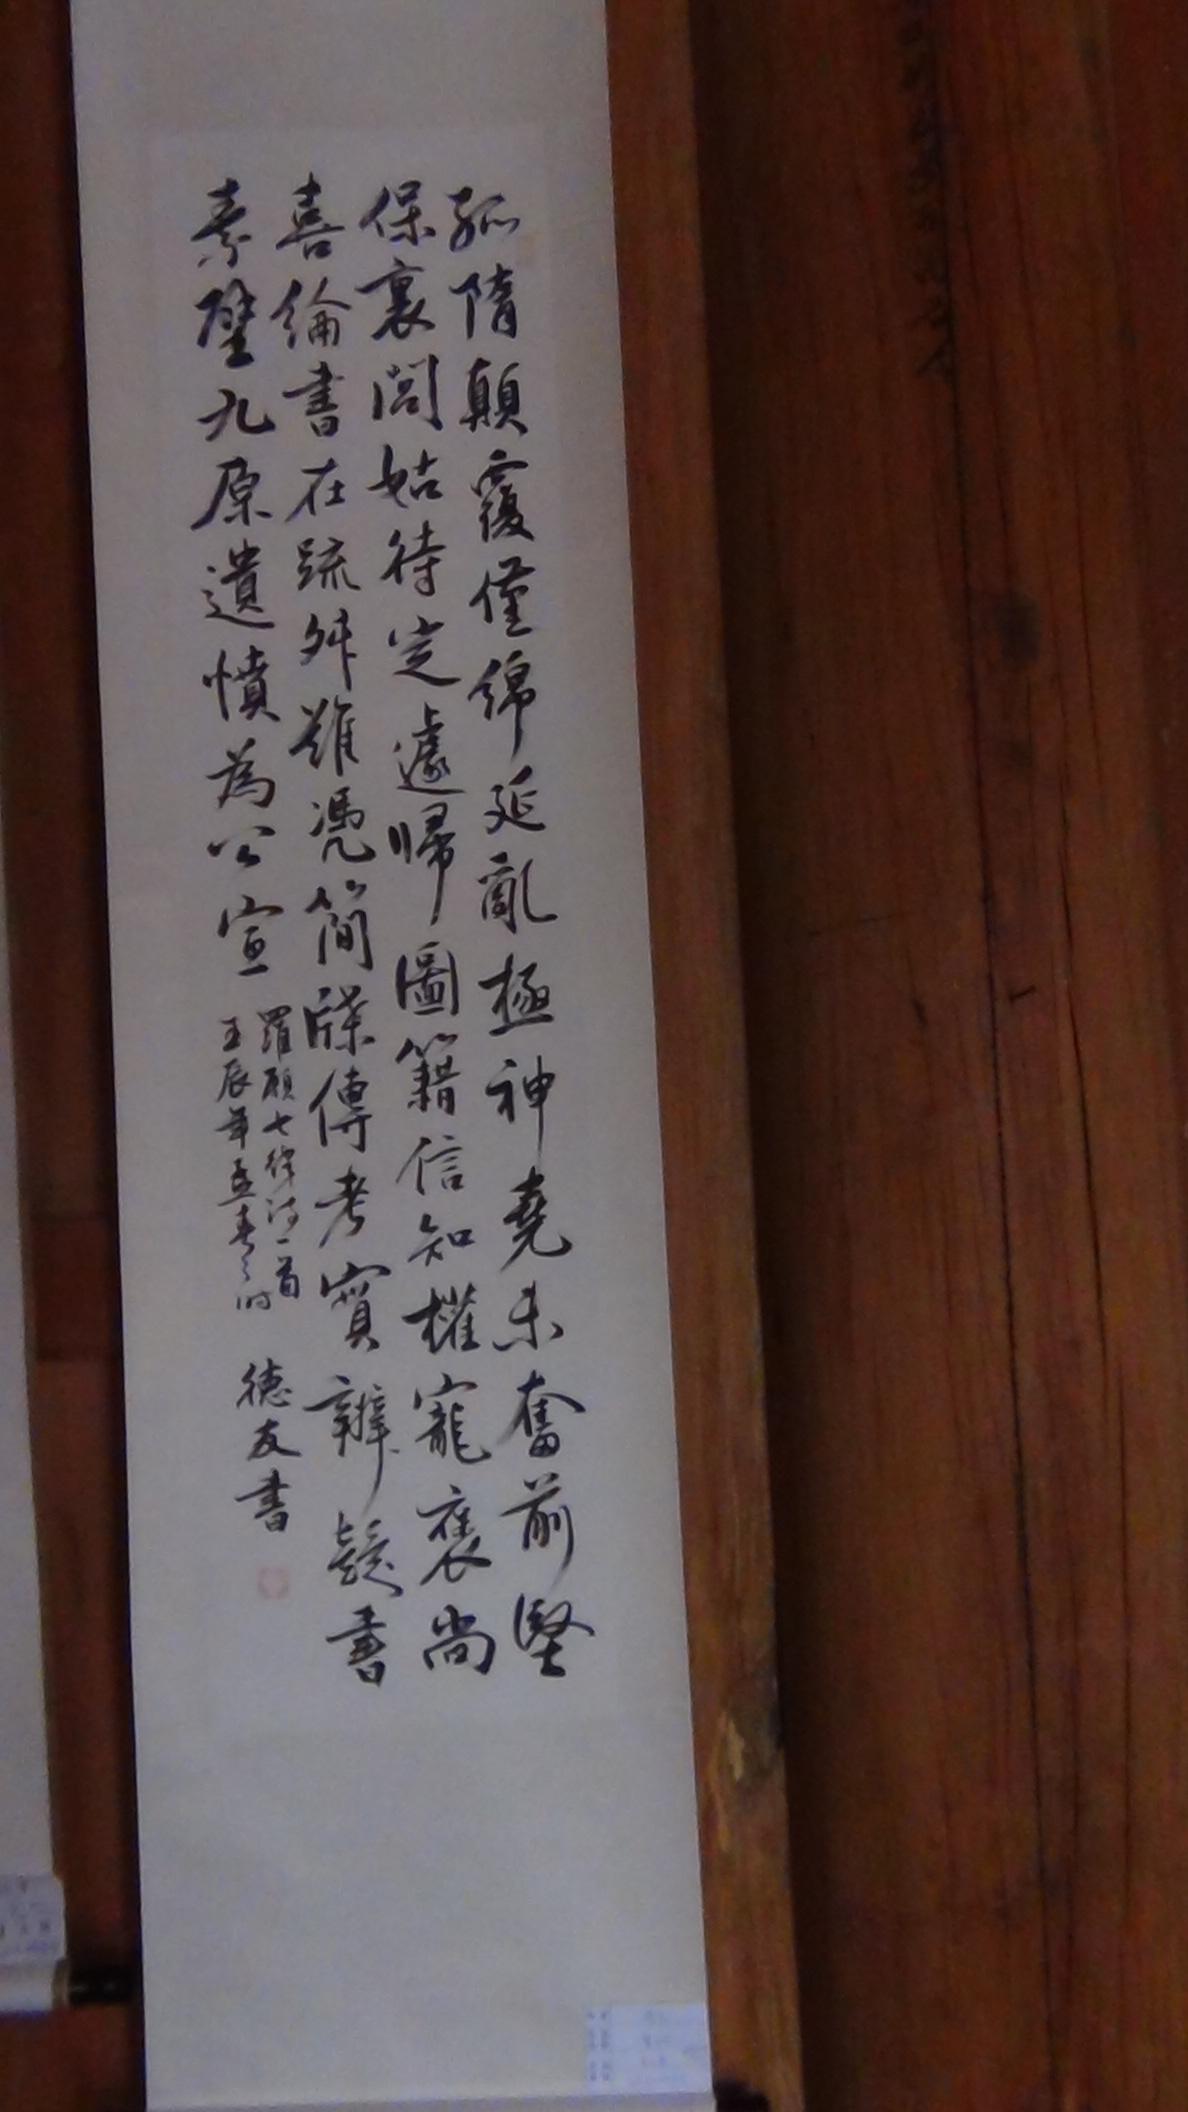 孤隋顛覆僅綿延亂極神堯未奮前堅
保裏閭姑待定遽歸圖籍信知權寵褒尚
喜綸書在疏舛難憑簡牒傳考實辨疑書
素壁九原遺憤為公宣
羅願七律詩一首
壬辰年孟春之時
德友書